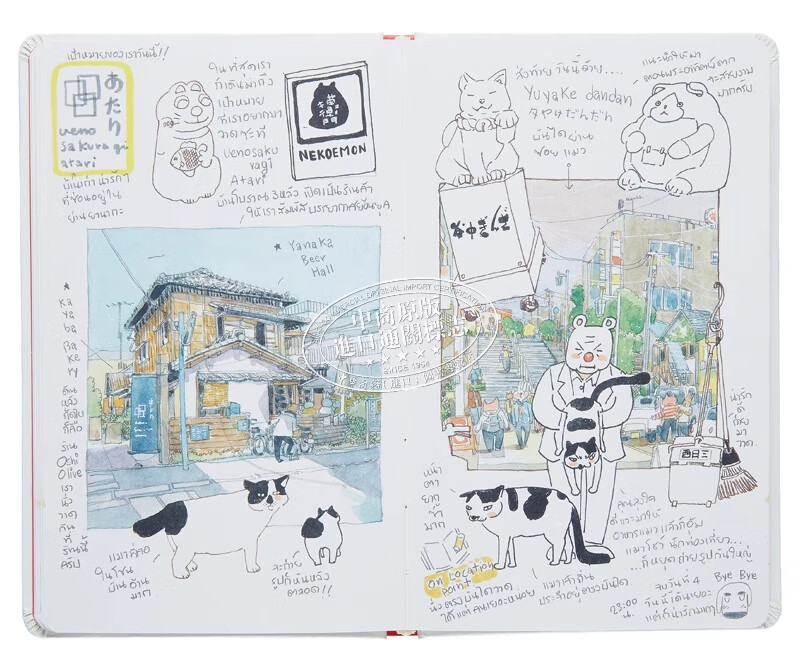 เป้าหมายของเราวันนี้!!
あたり
ueno
sakuragi
atari
บ้านเก่าน่ารักๆ
ที่ซ่อนอยู่ใน
ย่านยานากะ
ในที่สุดเรา
ก็เดินมาถึง
เป้าหมาย
ที่เราอยากมา
วาดซะที
Uenosaku
ragi
Atari
บ้านโบราณ 3 หลัง เปิดเป็นร้านค้า
NEKOEMON
★ Yanaka
Beer
Hall
★
Kayaba Bakery
ร้าน
Oshi
Olive
เรา
นั่ง
วาด
กัน
ที่
ร้านนี้
ครับ
แมวลาย
ในโซน
บ้านอ้วน
มาก
จะถ่าย
รูปก็หันหลัง
ตลอด!!
ส่งท้ายวันนี้ด้วย....
Yuyake dandan
夕やけだんだん
บันไดผ่าน
ซอยแมว
แนะนำให้มา
ตอนพระอาทิตย์ตก
จะสวยงาม
มากครับ
谷中ぎんざ
น่ารัก
ดี
ถ่าย
มา
วาด
三日西
หน้า
ตา
ยาก
ซ้ำ
มาก
On Location
Point
นั่งตรงบันไดวาด
ได้แต่คนเยอะหน่อย
แมวเจ้าถิ่น
ประจำอยู่ตรงบันได
คุณลุงใจ
ดีแวะมาให้
อาหารแมว แล้วก็อุ้ม
แมวโชว์ นักท่องเที่ยว...
...ก็หยุดถ่ายรูปกันใหญ่
23:00
น.
จบวันที่ 4
วันนี้เดินเยอะ
แต่ก็น่ารักมากๆ
Bye Bye
中商原版
進口通關標志
SINCE 1956